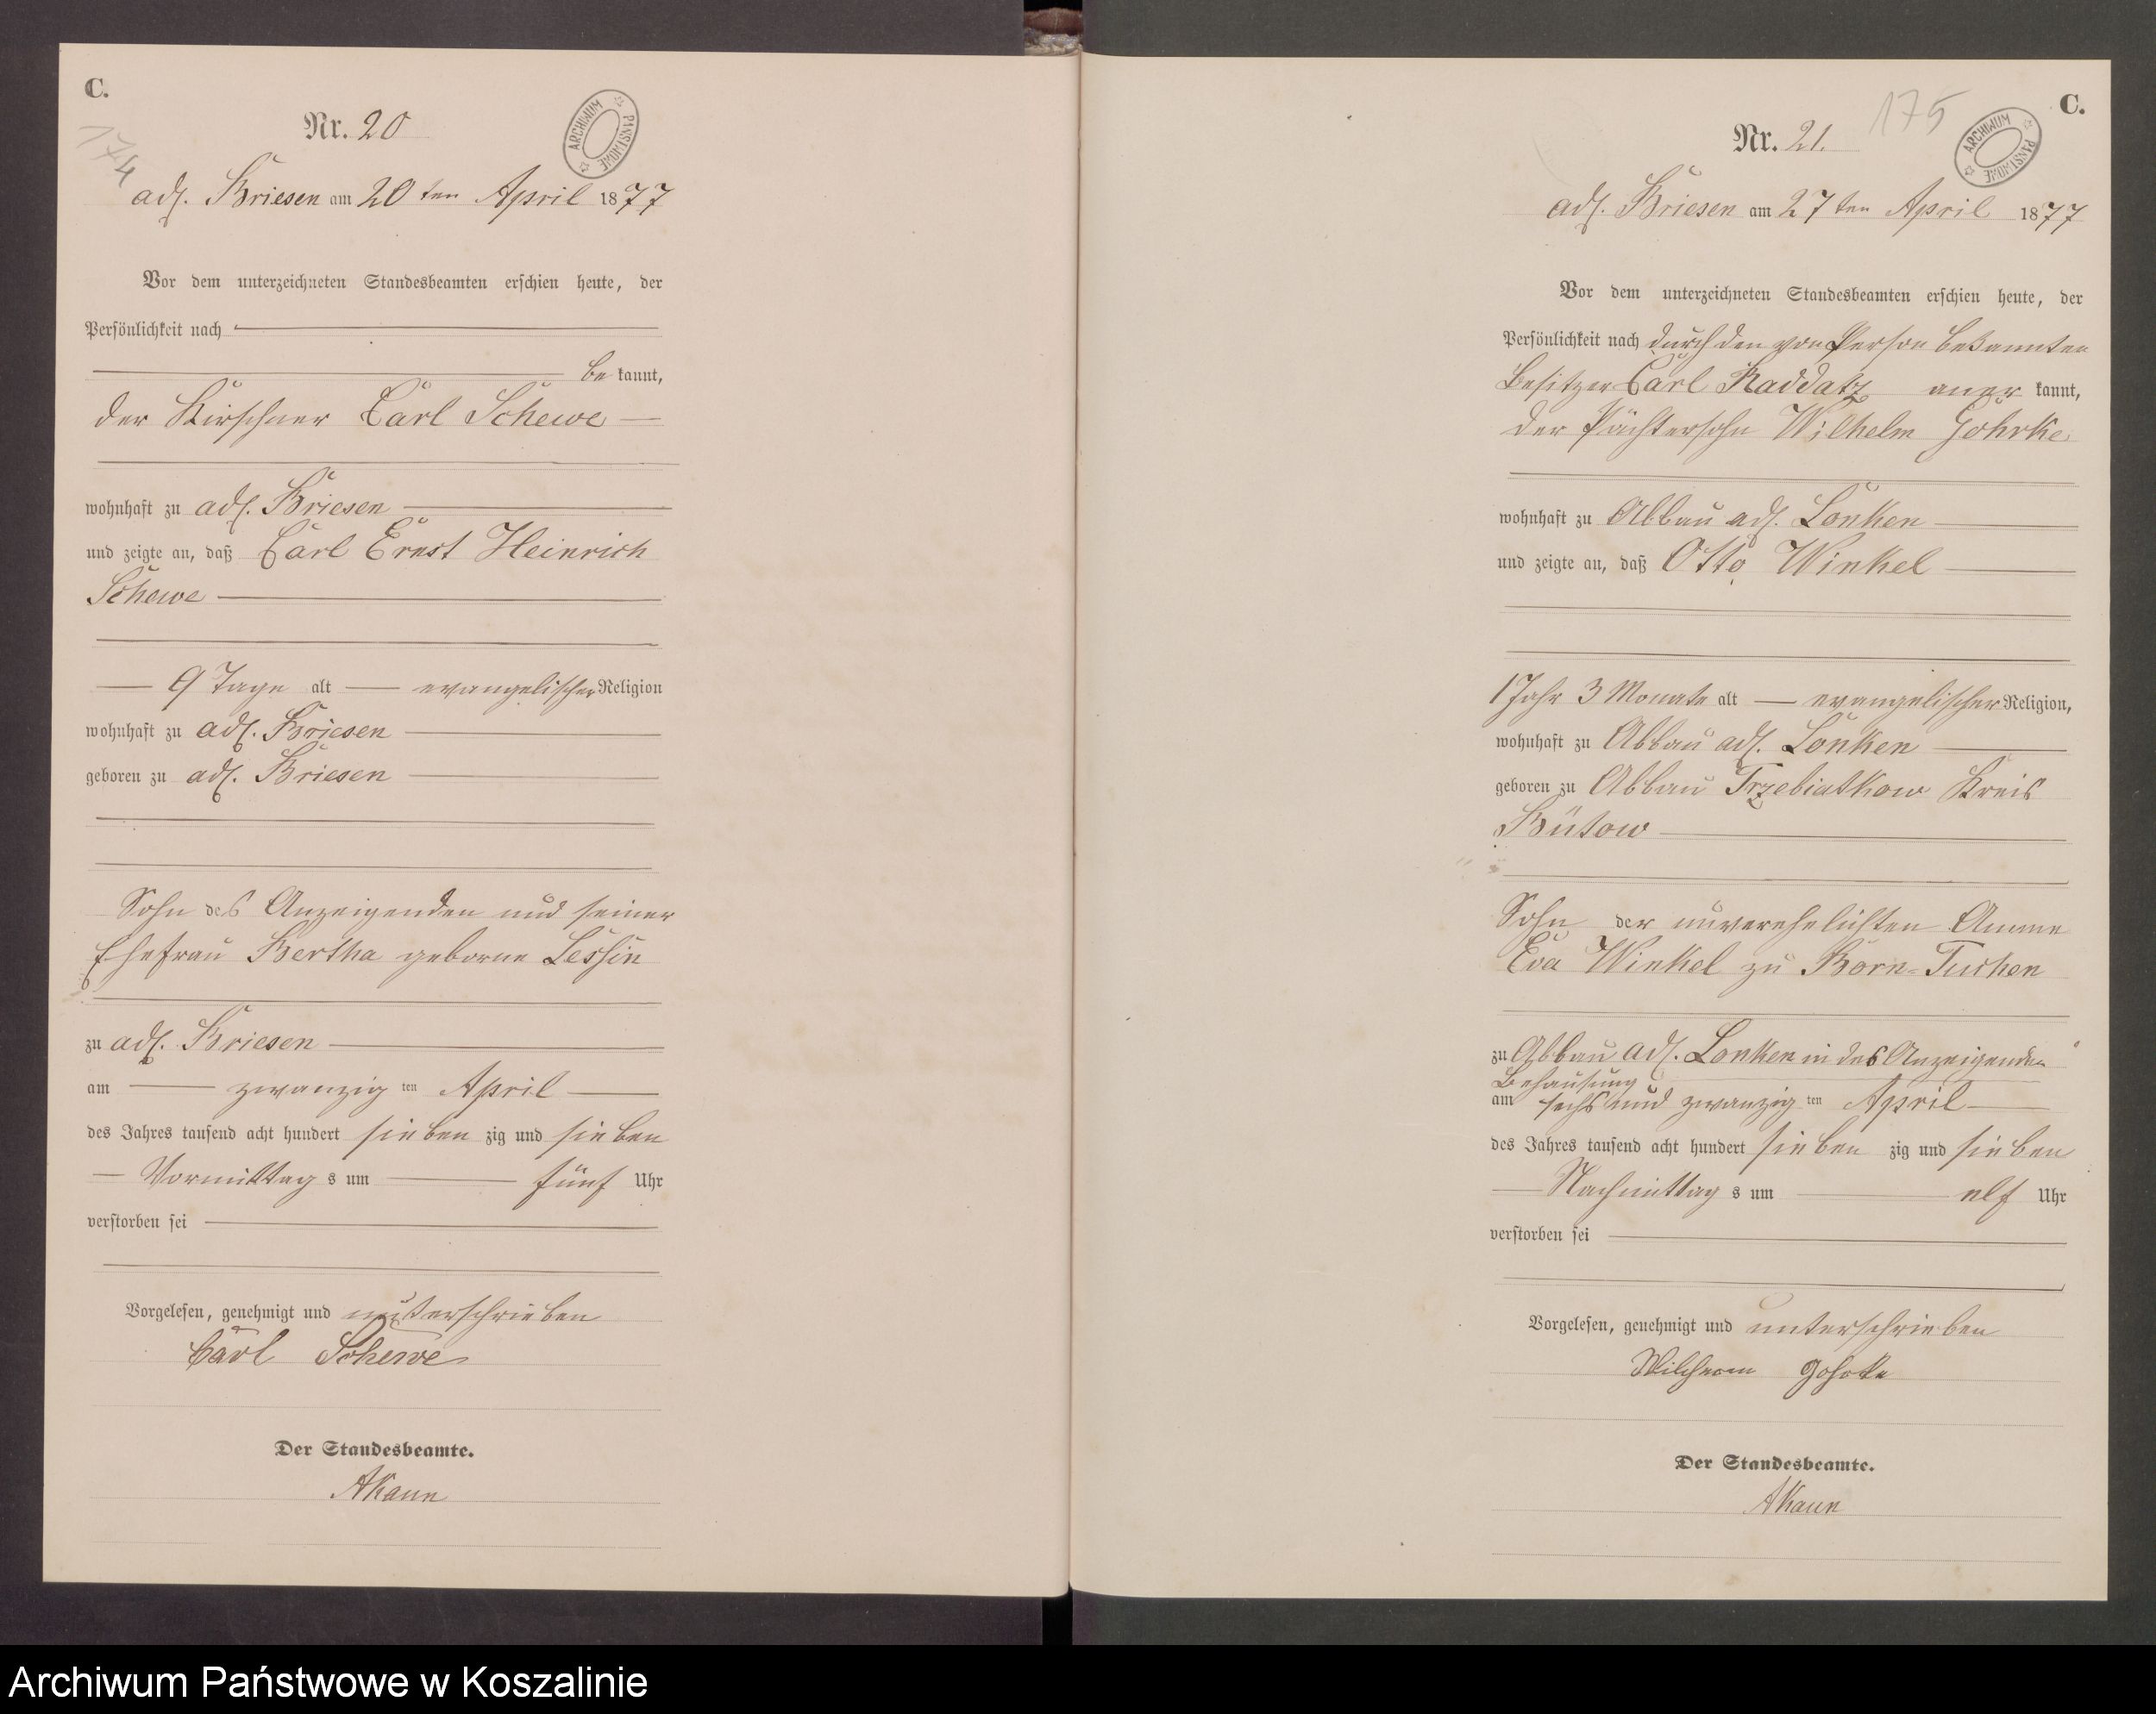 C.
174
Nr. 20
ARCHIWUM PANSTWOWE
adl. Briesen am 20 ten April 1877
Vor dem unterzeichneten Standesbeamten erschien heute, der
Persönlichkeit nach
be kannt,
der Kirschner Carl Schewe
wohnhaft zu adl. Briesen
und zeigte an, daß Carl Ernst Heinrich
Schewe
9 Tage alt evangelischer Religion
wohnhaft zu adl. Briesen
geboren zu adl. Briesen
Sohn des Anzeigenden und seiner
Ehefrau Bertha geborne Lessin
zu adl. Briesen
am zwanzig ten April
des Jahres tausend acht hundert sieben zig und sieben
Vormittag s um fünf Uhr
verstorben sei
Vorgelesen, genehmigt und unterschrieben
Carl Schewe
Der Standesbeamte.
AKaun
C.
175
Nr. 21.
ARCHIWUM PANSTWOWE
adl. Briesen am 27 ten April 1877
Vor dem unterzeichneten Standesbeamten erschien heute, der
Persönlichkeit nach durch den von Person bekannten
Besitzer Carl Raddatz aner kannt,
der Pächtersohn Wilhelm Göhrke
wohnhaft zu Abbau adl. Lonken
und zeigte an, daß Otto Winkel
1 Jahr 3 Monate alt evangelischer Religion,
wohnhaft zu Abbau adl. Lonken
geboren zu Abbau Trzebiatkow Kreis
Bütow
Sohn der unverehelichten Amme
Eva Winkel zu Born-Tuchen
zu Abbau adl. Lonken in des Anzeigenden
Behausung
am sechs und zwanzig ten April
des Jahres tausend acht hundert sieben zig und sieben
Nachmittag s um elf Uhr
verstorben sei
Vorgelesen, genehmigt und unterschrieben
Wilhelm Gohrke
Der Standesbeamte.
AKaun
Archiwum Państwowe w Koszalinie